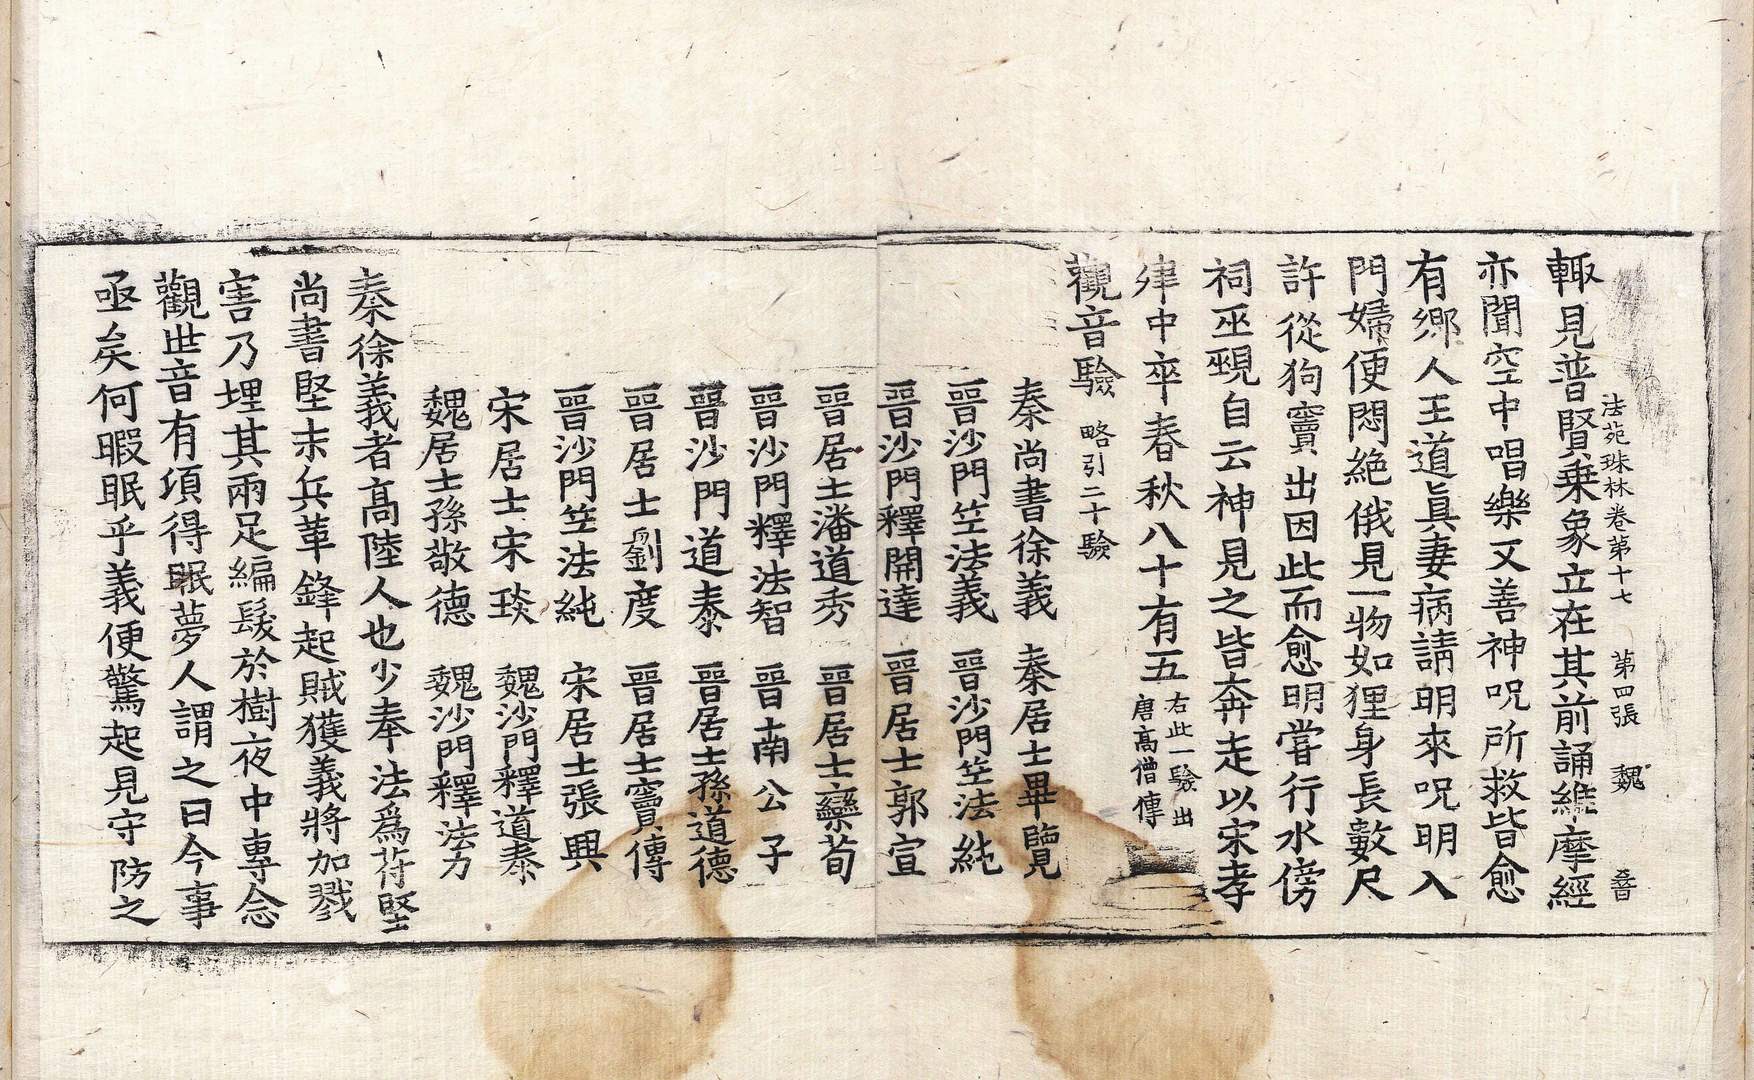 法苑珠林卷第十七　第四張　魏　晉
輙見普賢乗象立在其前誦維摩經
亦聞空中唱樂又善神呪所救皆愈
有鄉人王道眞妻病請明來呪明入
門婦便悶絶俄見一物如狸身長數尺
許從狗竇出因此而愈明甞行水傍
祠巫覡自云神見之皆奔走以宋孝
建中卒春秋八十有五 右此一驗出
唐高僧傳
觀音驗 略引二十驗
秦尚書徐義　秦居士畢覽
晉沙門笁法義　晉沙門笁法純
晉沙門釋開達　晉居士郭宣
晉居士潘道秀　晉居士欒荀
晉沙門釋法智　晉南公子
晉沙門道泰　晉居士孫道德
晉居士劉度　晉居士竇傳
晉沙門笁法純　宋居士張興
宋居士宋琰　魏沙門釋道泰
魏居士孫敬德　魏沙門釋法力
秦徐義者高陸人也少奉法爲苻堅
尚書堅末兵革鋒起賊獲義將加戮
害乃埋其兩足編髮於樹夜中專念
觀世音有項得眠夢人謂之曰今事
亟矣何暇眠乎義便驚起見守防之